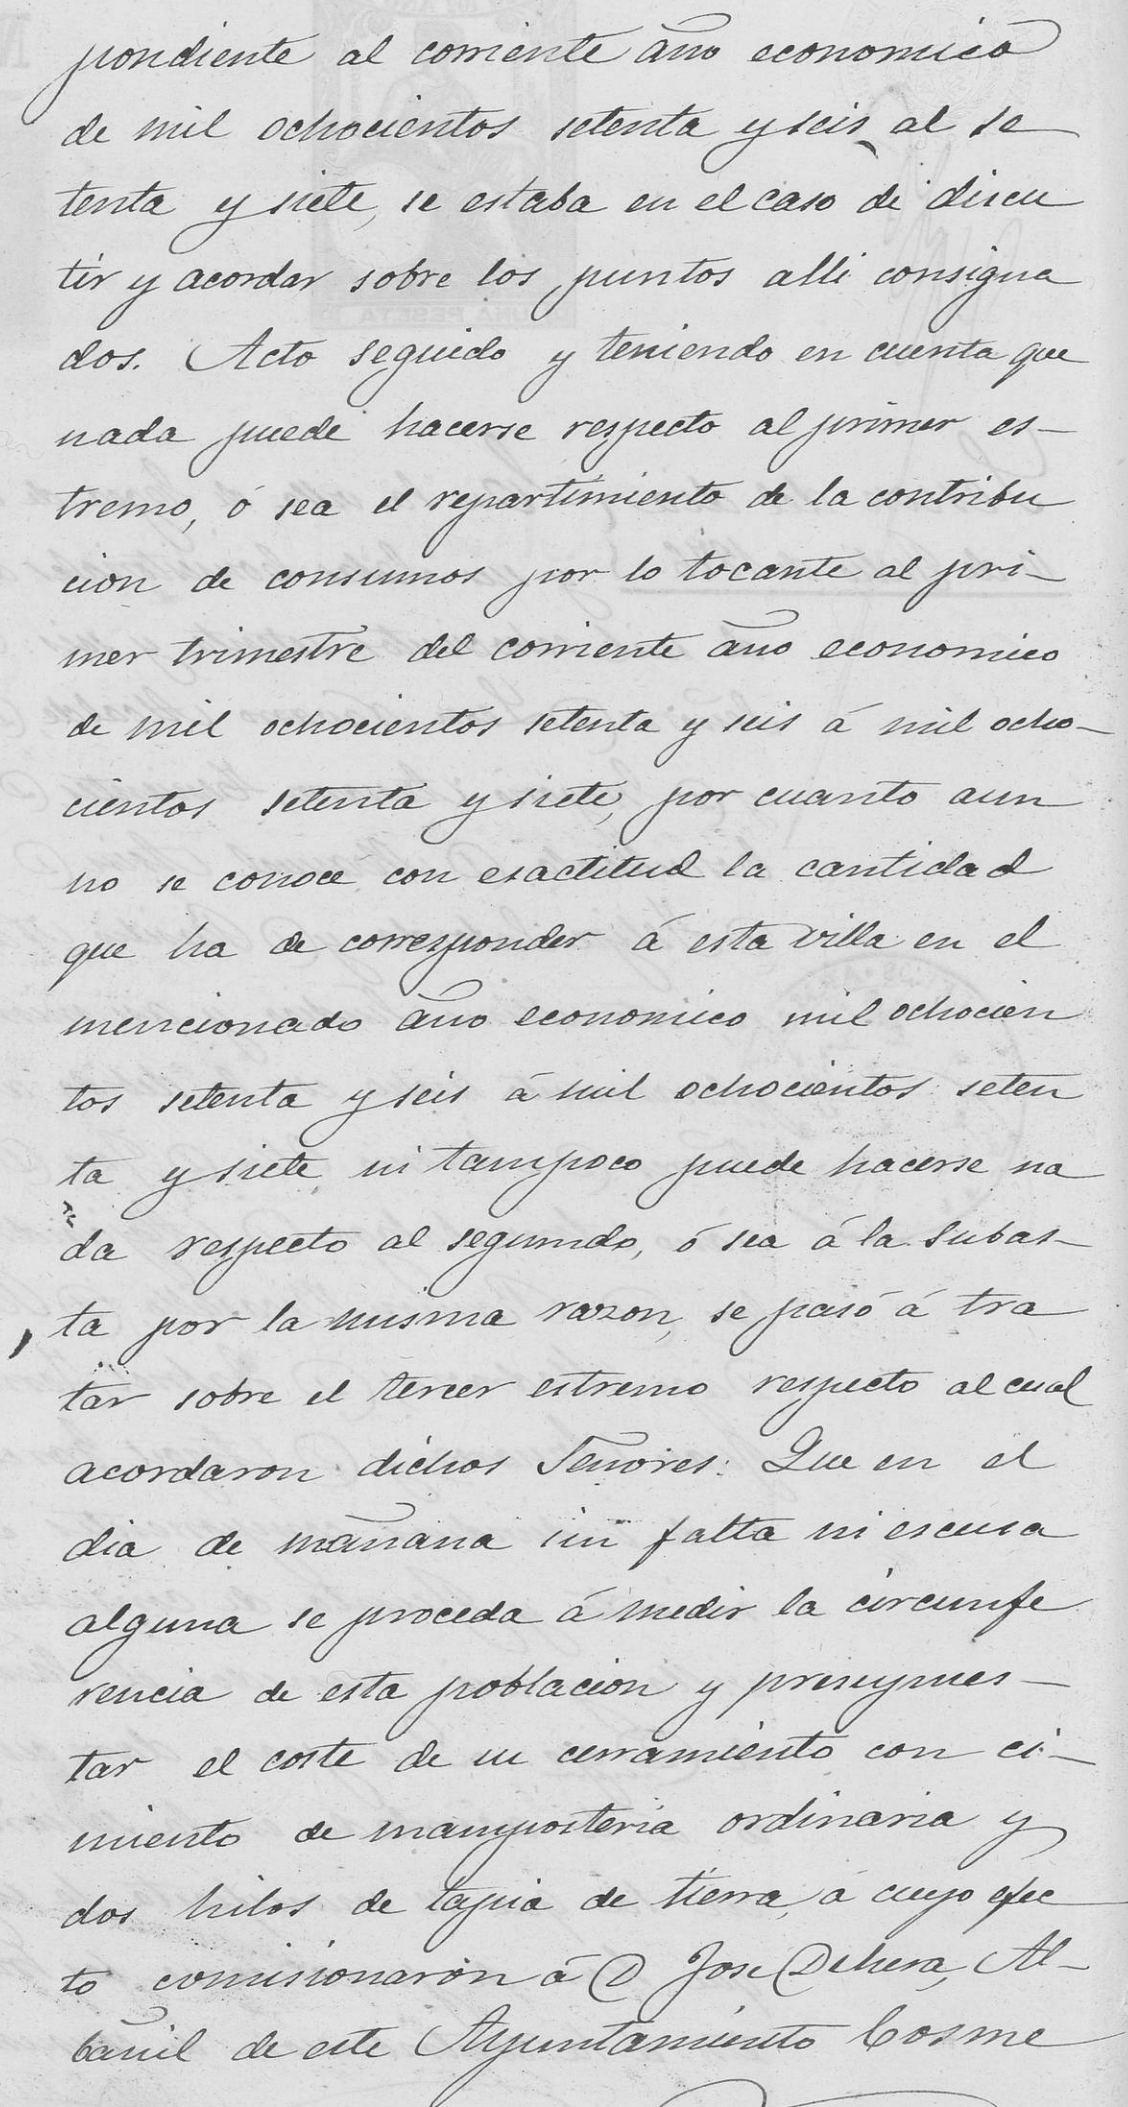 pondiente al corriente año economico
de mil ochocientos setenta y seis al se
tenta y siete, se estaba en el caso de discu
tir y acordar sobre los puntos alli consigna
dos. Acto seguido y teniendo en cuenta que
nada puede hacerse respecto al primer es-
tremo, ó sea el repartimiento de la contribu
cion de consumos por lo tocante al pri-
mer trimestre del corriente año economico
de mil ochocientos setenta y seis á mil ocho-
cientos setenta y siete, por cuanto aun
no se conoce con esactitud la cantidad
que ha de corresponder á esta villa en el
mencionado año economico mil ochocien
tos setenta y seis á mil ochocientos seten
ta y siete ni tampoco puede hacerse na
da respecto al segundo, ó sea á la subas-
ta por la misma razon, se pasó á tra
tar sobre el tercer estremo respecto al cual
acordaron dichos Señores: Que en el
dia de mañana sin falta ni escusa
alguna se proceda á medir la circunfe
rencia de esta poblacion y presupues-
tar el coste de su cerramiento con ci-
miento de mamposteria ordinaria y
dos hilos de tapia de tierra, á cuyo efec
to comisionaron á D Jose Dehesa, Al-
bañil de este Ayuntamiento Cosme
UNA PESETA